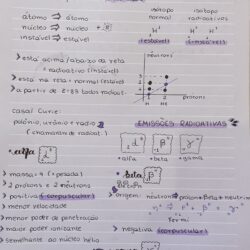 isotopo isotopo
normal radioativos
átomo ⇒ átomo
núcleo ⇒ núcleo +
instável ⇒ estável
(estável) (instável)
> está acima/abaixo da reta
= radioativo (instável)
> está na reta = normal (estável)
> a partir de Z=84 todos radioat.
neutrons
protons
H He
Casal Curie:
polônio, urânio e radio
(chamaram de radioat.)
EMISSÕES RADIOATIVAS
α β γ
alfa beta gama
alfa α
beta β
> massa = 4 (pesada)
> 2 protons e 2 neutrons
> positiva (corpuscular)
> menor velocidade
> menor poder de penetração
> maior poder ionizante
> semelhante ao núcleo hélio
> origem: neutron ⇒ proton + beta + neutrino
Fermi
> negativa (corpuscular)